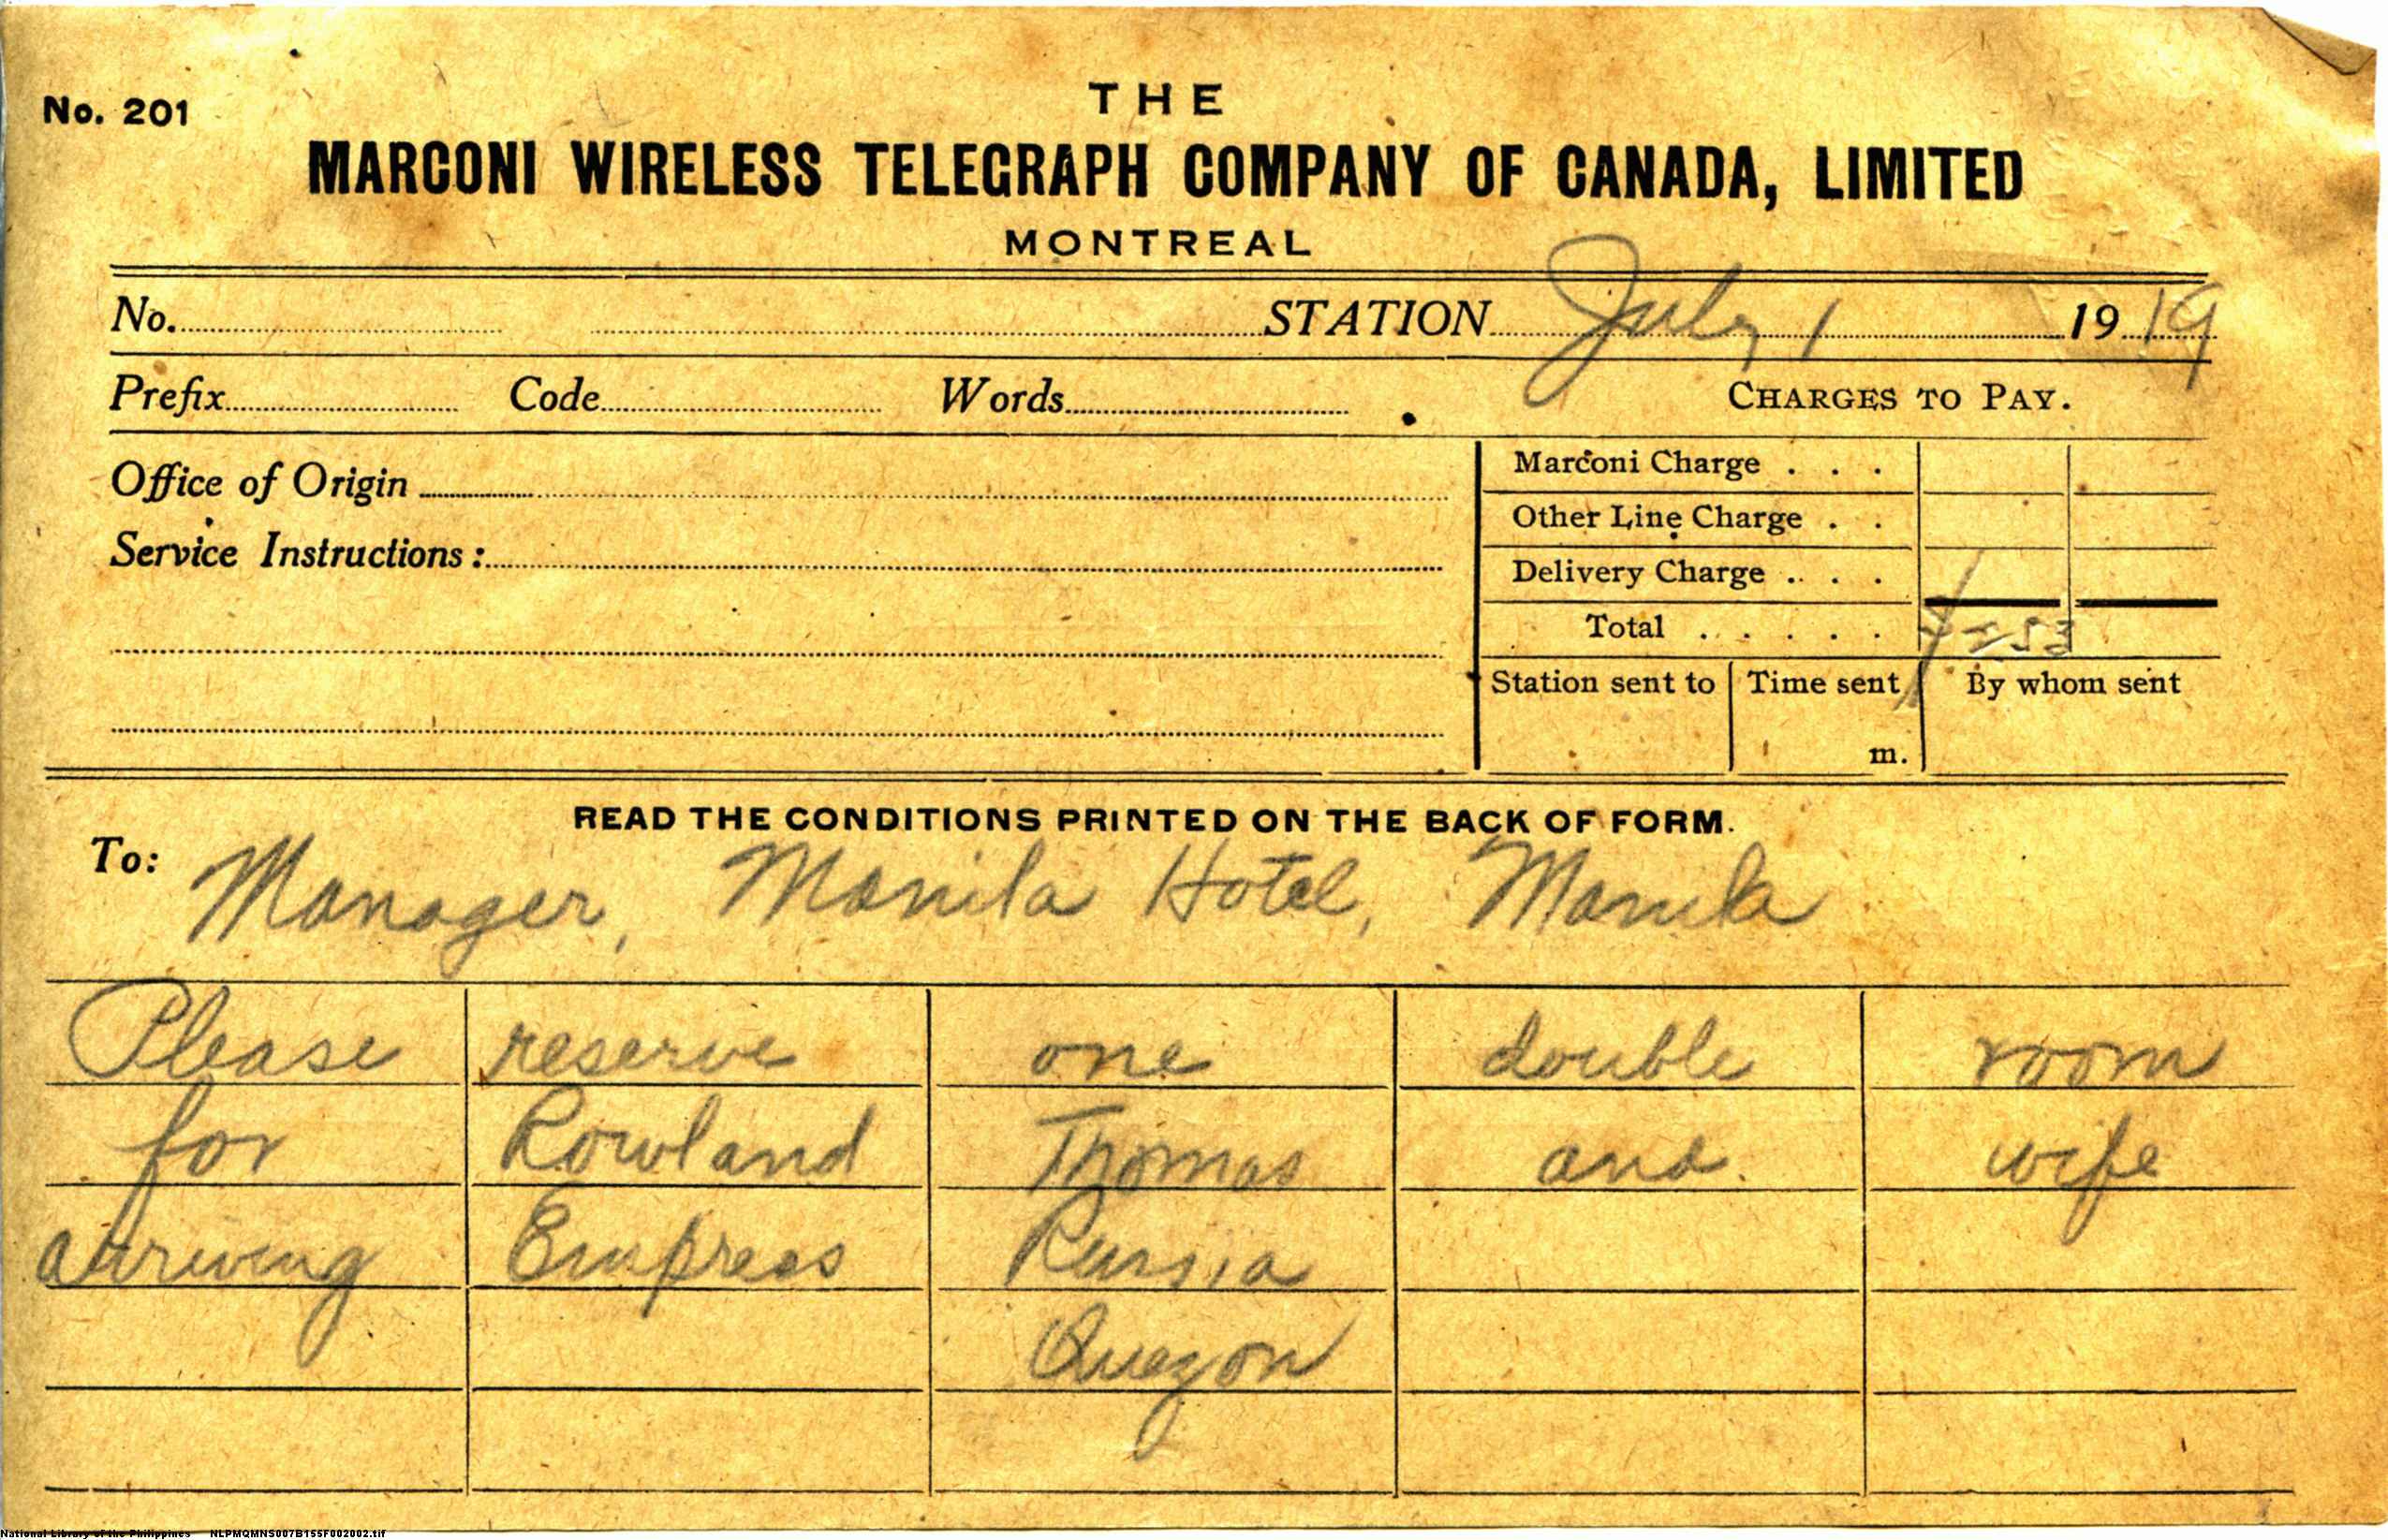 No. 201
THE
MARCONI WIRELESS TELEGRAPH COMPANY OF CANADA, LIMITED
MONTREAL
No. STATION July 1 1919
Prefix Code Words CHARGES TO PAY.
Office of Origin
Service Instructions:
Marconi Charge
Other Line Charge
Delivery Charge
Total
Station sent to Time sent By whom sent
m.
READ THE CONDITIONS PRINTED ON THE BACK OF FORM.
To: Manager, Manila Hotel, Manila
Please reserve one double room
for Rowland Thomas and wife
arriving Empress Russia
Quezon
National Library of the Philippines NLPMQMNS007B155F002002.tif